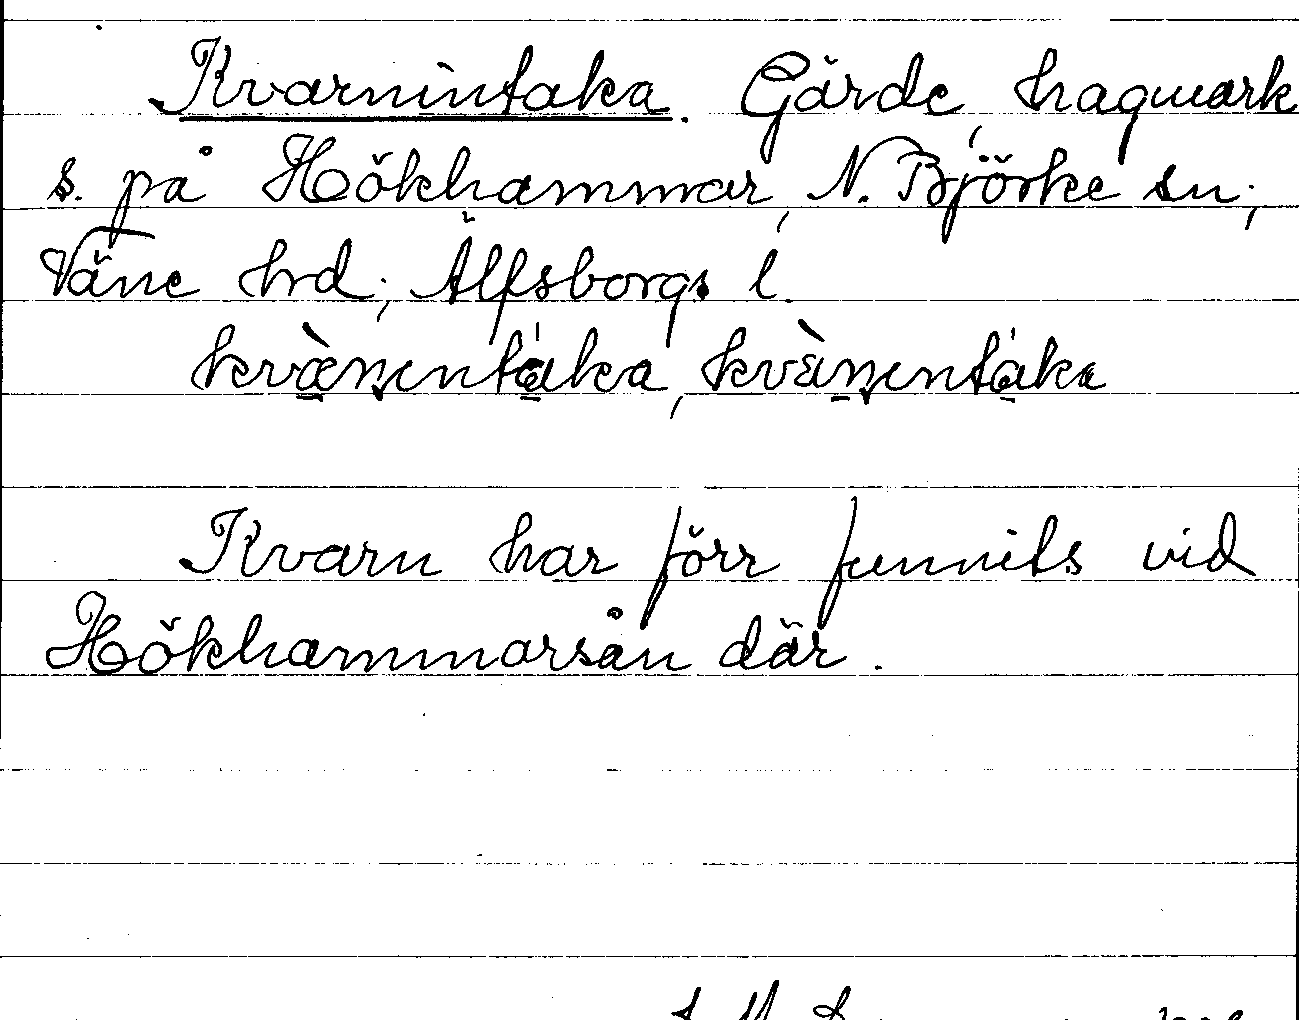 Kvarnintaka. Gärde, hagmark
s. på Hökhammar, N. Björke sn;
Väne hd; Älfsborgs l.
kvànentáka, kvànentáka
Kvarn har förr funnits vid
Hökhammarsån där.